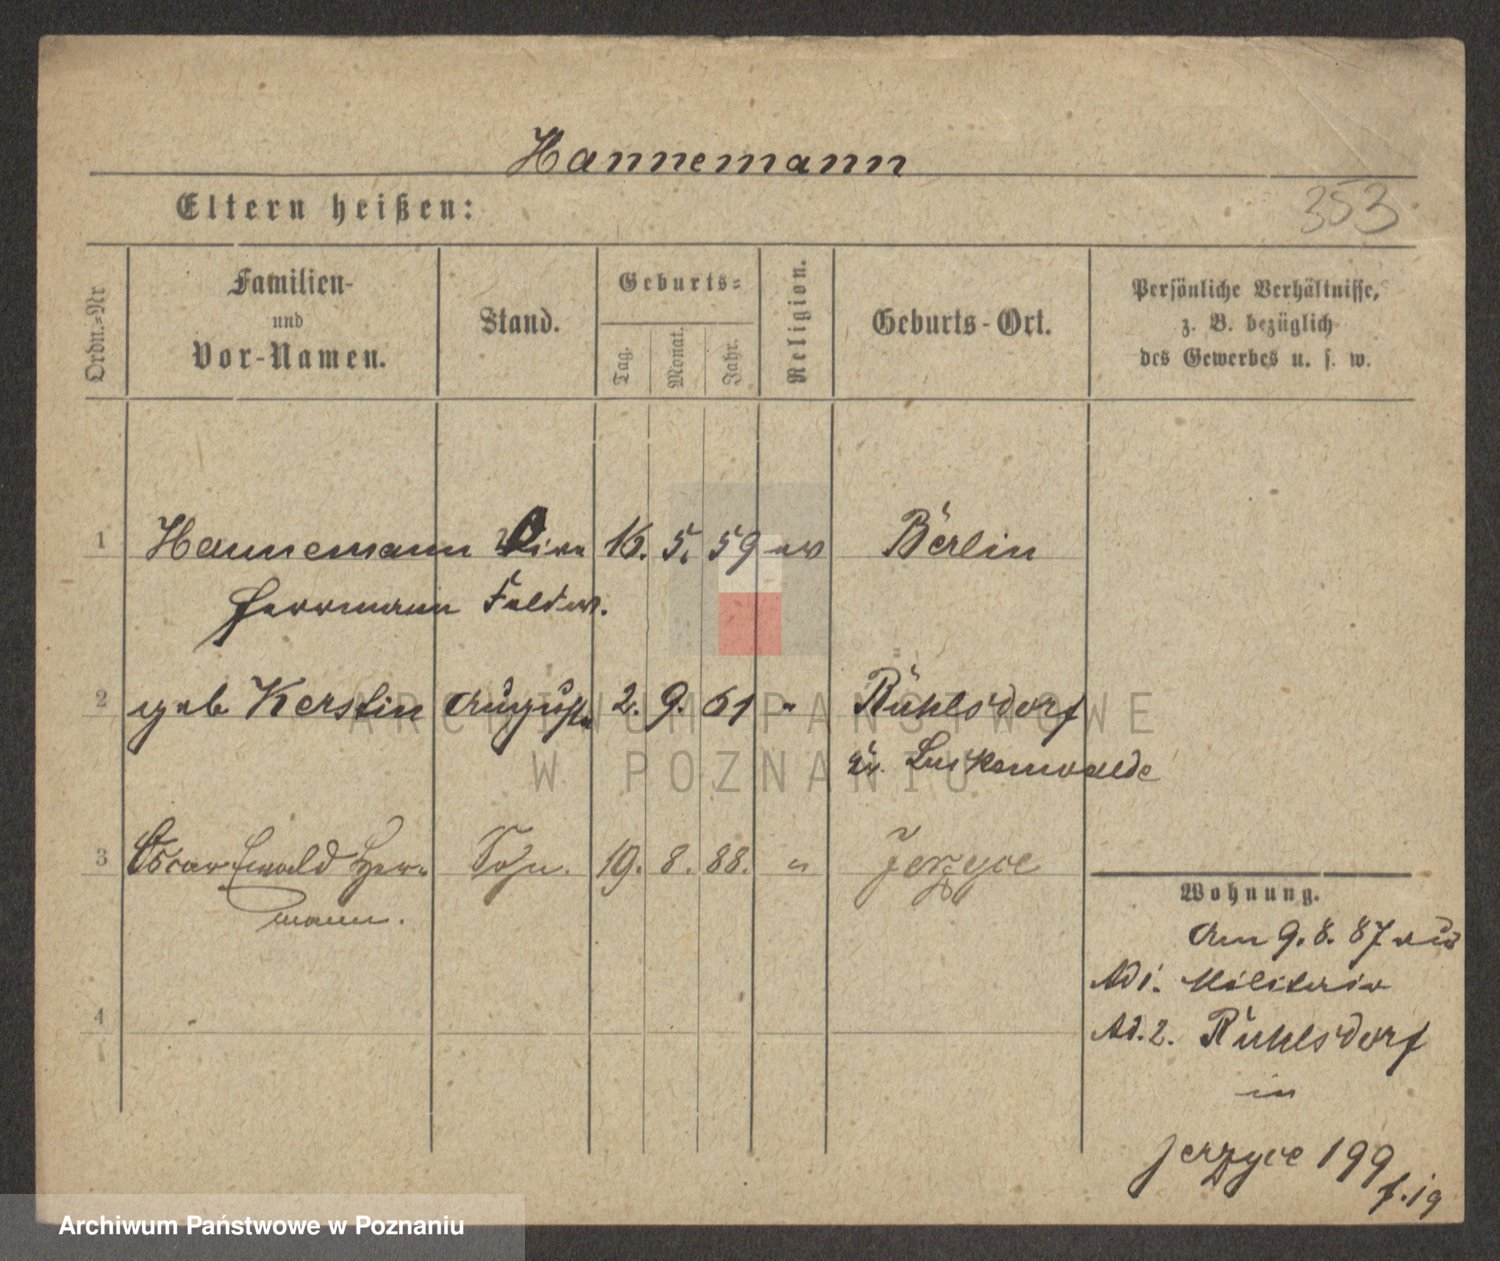 Hannemann
Eltern heißen:
353
Ordn.-Nr
Familien-
und
Vor-Namen.
Stand.
Geburts-
Tag.
Monat.
Jahr.
Religion.
Geburts-Ort.
Persönliche Verhältnisse,
z. B. bezüglich
des Gewerbes u. s. w.
1 Hannemann 16. 5. 59 ev Berlin
Herrmann Feldw.
2 geb Kerstin Auguste 2. 9. 61 " Rühlsdorf
Kr. Luckenwalde
3 Oscar Ewald Her- Sohn. 19. 8. 88. " Jerzyce
mann.
4
Wohnung.
Am 9. 8. 87 aus
Ad 1. Militair
Ad. 2. Rühlsdorf
in
Jerzyce 199
f. 19
ARCHIWUM PAŃSTWOWE
W POZNANIU
Archiwum Państwowe w Poznaniu